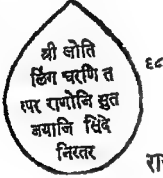 श्री जोति
लिंग चरणि त
त्पर राणोजि सुत
जयाजि शिंदे
निरतर
६८